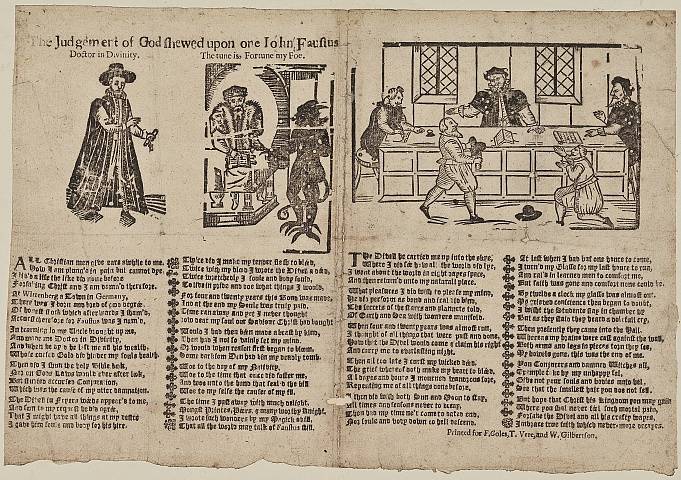 The Judgement of God shewed upon one Iohn Faustus
Doctor in Divinity.
The tune is, Fortune my Foe.
ALL Christian men give eare awhile to me,
How I am plung'd in pain but cannot dye,
I liv'd a life the like did none before
Forsaking Christ and I am damn'd therefore.
At Wittenberg a Town in Germany,
There was I born and bred of good degree,
Of honest stock which afterwards I sham'd,
Accurst therefore for Faustus was I nam'd.
In learning
And made me Doctor in Divinity,
And when he dy'd he left me all his wealth,
Whose cursed Gold did hinder my souls health.
Then did I shun the holy Bible book,
Nor on Gods Word would ever after look,
But studied accursed Conjuration,
Which was the cause of my utter damnation.
The Divel in Fryers
And
That I might have all things at my
I gave him soule and body for his hire.
Twice did I make my tender flesh to bleed,
Twice with my blood I wrote the Divel a deed,
Twice wretchedly I soule and body sould,
To live in
For four and twenty years this Bond was made,
And at the end my soule was truly paid,
Time ran away and yet I never thought
How dear my soul our Saviour Christ had bought
Would I had then been made a beast by kinde,
Then had I not so vainly set my minde,
Or would when reason first began to bloome
Some darksom Den had bin my deadly tombe.
Woe to the day of my Nativity,
Woe to the time that once did foster me,
And woe unto the hand that seal'd the bill
Woe to my selfe the cause of my ill.
The time I past away with much delight,
Amongst Princes, Peers, and many worthy Knight,
I wrought such wonders by my Magick skill,
That all the world may talk of Faustus still.
The Divell he carried me up into the skye,
Where I did see how all the world did lye,
I went about the world in eight dayes space,
And then return'd unto my natural place.
What pleasure I did wish to please my minde,
He did perform as bond and seal did binde,
The secrets of the starres and planets told,
Of Earth and Sea with wonders manifold.
When four and twenty years was almost run,
I thought of all things that were past and done,
How that the Divel would come and claim his right
And carry me to everlasting night.
Then all too late I curst my wicked deed,
The grief whereof doth make my heart to bleed,
All dayes and hours I mourned wondrous sore,
Repenting me of all things done before.
I then did wish both Sun and Moon to stay,
All times and seasons never to decay,
Then had my time nev'r come to dated end,
Nor soule and body down to hell descend.
At last when I had but one houre to come,
I turn'd my Glasse for my last houre to run,
And cal'd in learned men to comfort me,
But faith was gone and comfort none could be.
By twelve a clock my glasse was almost out,
My grieved conscience then began to doubt,
I wisht the Students stay in chamber by
But as they staid they heard a dolefull cry.
Then presently they came into the Hall.
Whereas my brains were cast against the wall,
Both arms and legs in pieces torn they see,
My bowels gone, this was the end of me.
You Conjurers and damned Witches all,
Example take by my unhappy fal,
Give not your souls and bodies unto hel,
See that the smallest hair you doe not sel.
But hope that Christ his Kingdom you may gain
Where you shal never fear such mortal pain,
Forsake the Divel and all his crafty wayes,
Imbrace true faith which never more decayes.
Printed for F. Coles, T. Vere, and W. Gilbertson.